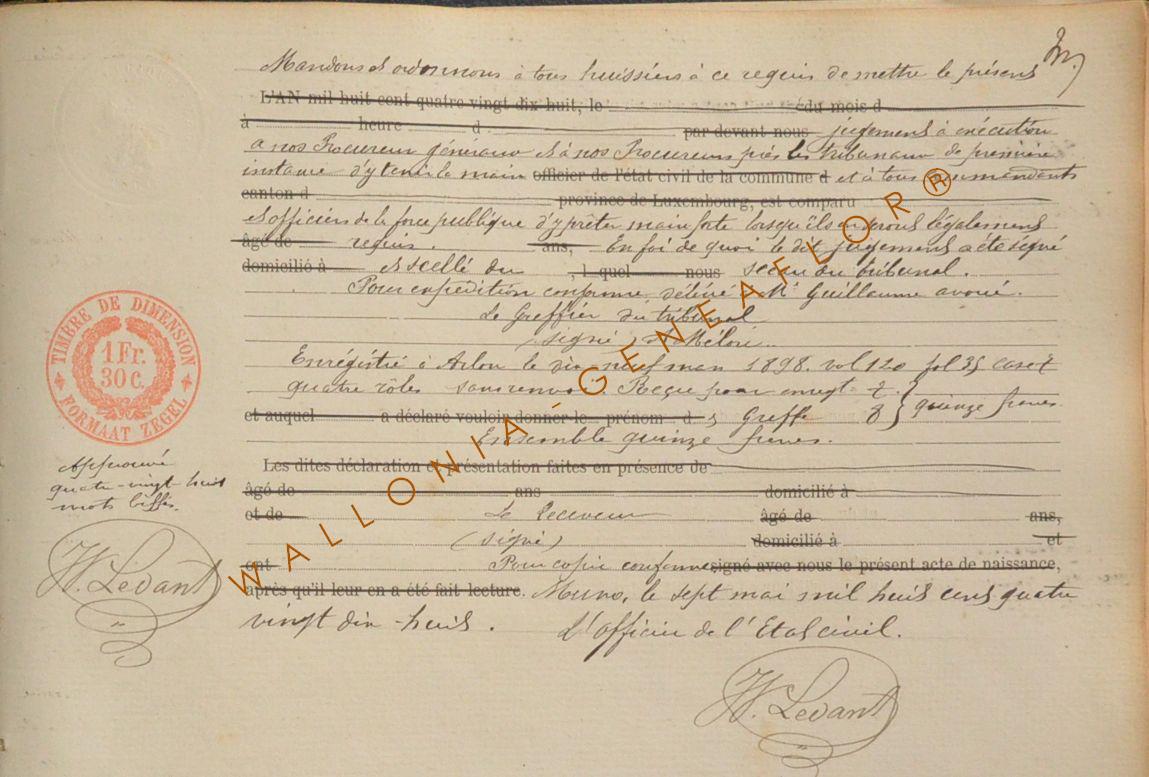 Mandons et ordonnons à tous huissiers à ce requis de mettre le présent
L'AN mil huit cent quatre vingt dix huit, le du mois d
à heure d par devant nous jugement à exécution
a nos Procureur généraux et à nos Procureurs près les tribunaux de première
instance d'y tenir la main officier de l'état civil de la commune d et à tous commandants
canton d province de Luxembourg, est comparu
et officiers de la force publique d'y prêter main forte lorsqu'ils en seront légalement
âgé de requis. ans, En foi de quoi le dit jugement a été signé
domicilié à et scellé du , l quel nous sceau du tribunal.
Pour expédition conforme délivré Mr Guillaume avoué.
Le Greffier du tribunal
(signé)
Enrégistré à Arlon le dix neuf mars 1898. vol 120 fol 35 case 7
quatre rôles sans renvoi. Reçu pour enregt 7.
et auquel a déclaré vouloir donner le prénom d Greffe 8 } quinze francs.
Ensemble quinze francs.
Les dites déclaration et présentation faites en présence de
âgé de ans domicilié à
et de Le Receveur âgé de ans,
(signé) domicilié à et
ont Pour copie conforme signé avec nous le présent acte de naissance,
après qu'il leur en a été fait lecture. Muno, le sept mai mil huit cent quatre
vingt dix-huit. L'officier de l'Etat civil.
W. Levant
TIMBRE DE DIMENSION
1 Fr.
30 C.
FORMAAT ZEGEL
Approuvé
quatre-vingt huit
mots biffés.
W. Levant
WALLONIA-GENEALOR®